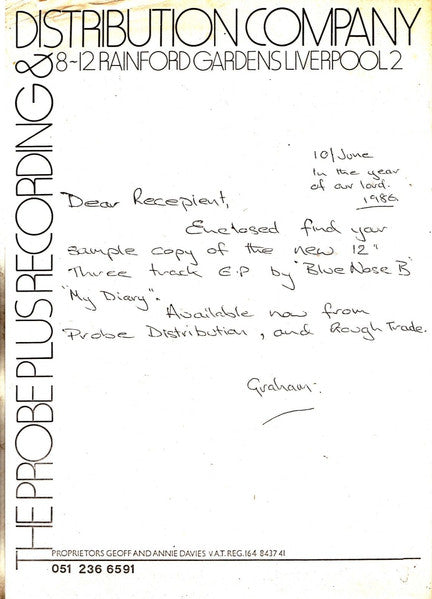 THE PROBE PLUS RECORDING &
DISTRIBUTION COMPANY
8~12 RAINFORD GARDENS LIVERPOOL 2
10/June
In the year
of our lord.
1986
Dear Recepient,
Enclosed find your
sample copy of the new 12"
Three track E.P by "Blue Nose B"
"My Diary".
Available now from
Probe Distribution, and Rough Trade.
Graham.
PROPRIETORS GEOFF AND ANNIE DAVIES V.A.T. REG. 164 8437 41
051 236 6591